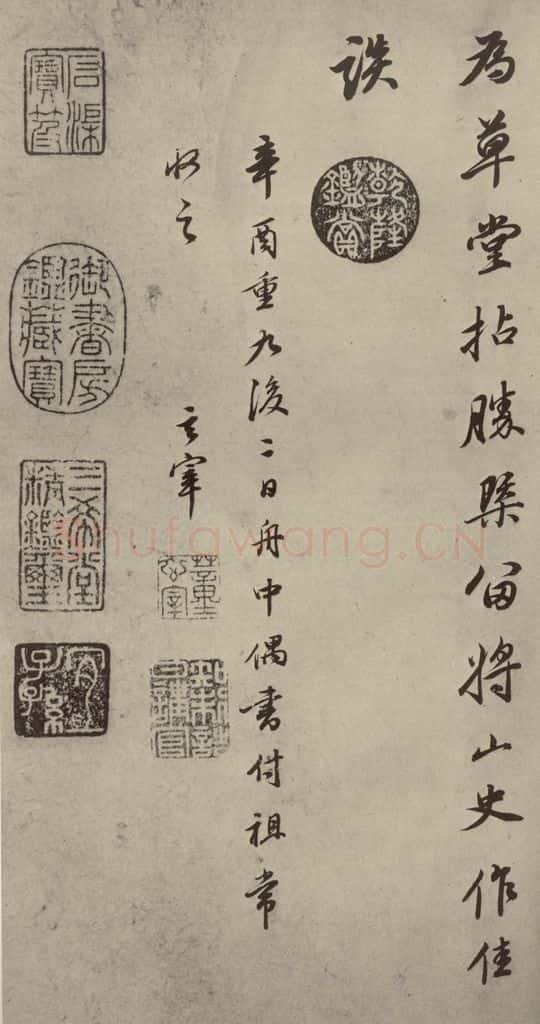 為草堂拈勝槩留將山史作佳
談
乾隆鑑賞
辛酉重九後二日舟中偶書付祖常
收之
玄宰
知制誥日講官
石渠寶笈
御書房鑑藏寶
三希堂精鑑璽
宜子孫
shufawang.CN